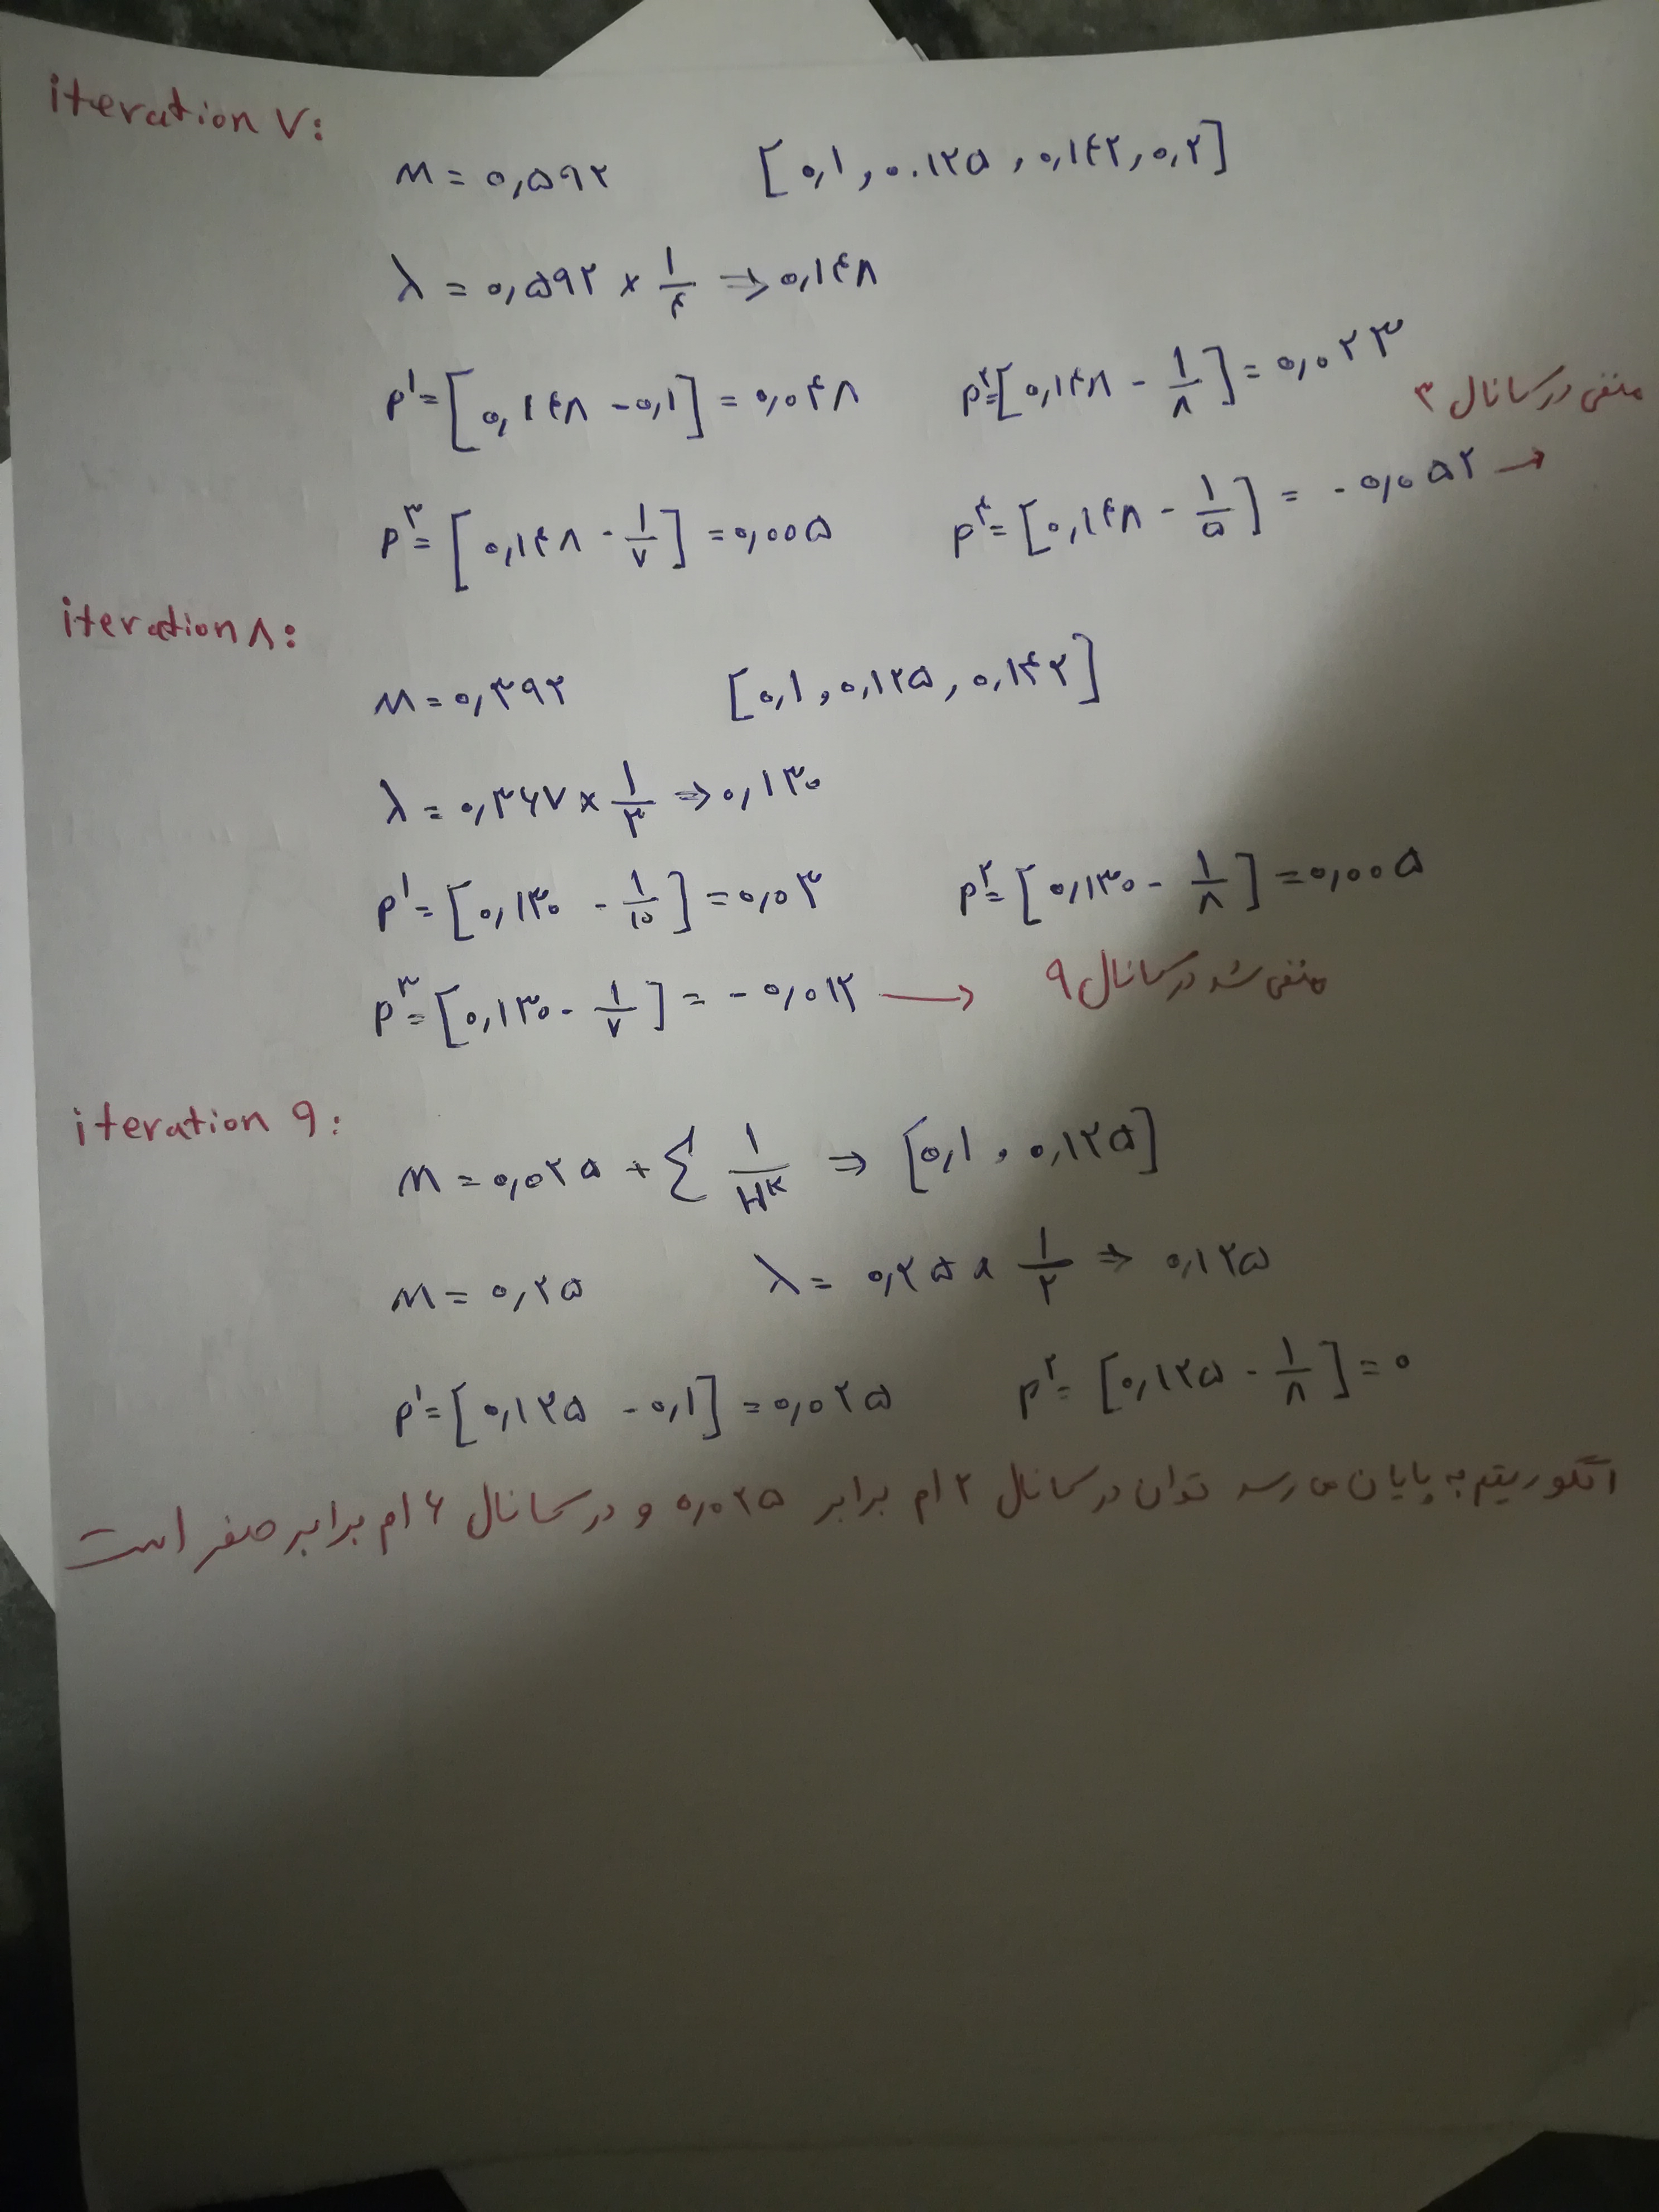 iteration ۷:
M = ۰,۵۹۲ [۰,۱ , ۰.۱۲۵ , ۰,۱۴۲, ۰,۲]
λ = ۰,۵۹۲ × ۱/۴ ⇒ ۰,۱۴۸
P¹= [۰,۱۴۸ - ۰,۱] = ۰,۰۴۸ P²= [۰,۱۴۸ - ۱/۸] = ۰,۰۲۳
منفی در کانال ۳
P³= [۰,۱۴۸ - ۱/۷] = ۰,۰۰۵ P⁴= [۰,۱۴۸ - ۱/۵] = - ۰,۰۵۲ →
iteration ۸:
M = ۰,۳۹۲ [۰,۱ , ۰,۱۲۵ , ۰,۱۴۲]
λ = ۰,۳۶۷ × ۱/۳ ⇒ ۰,۱۳۰
P¹= [۰,۱۳۰ - ۱/۱۰] = ۰,۰۳ P²= [۰,۱۳۰ - ۱/۸] = ۰,۰۰۵
P³= [۰,۱۳۰ - ۱/۷] = - ۰,۰۱۲ → منفی شد در کانال ۹
iteration ۹:
M = ۰,۰۲۵ + Σ ۱/Hᴷ ⇒ [۰,۱ , ۰,۱۲۵]
M = ۰,۲۵ λ = ۰,۲۵ × ۱/۲ ⇒ ۰,۱۲۵
P¹= [۰,۱۲۵ - ۰,۱] = ۰,۰۲۵ P²= [۰,۱۲۵ - ۱/۸] = ۰
الگوریتم به پایان می رسد توان در کانال ۲ ام برابر ۰,۰۲۵ و در کانال ۶ ام برابر صفر است